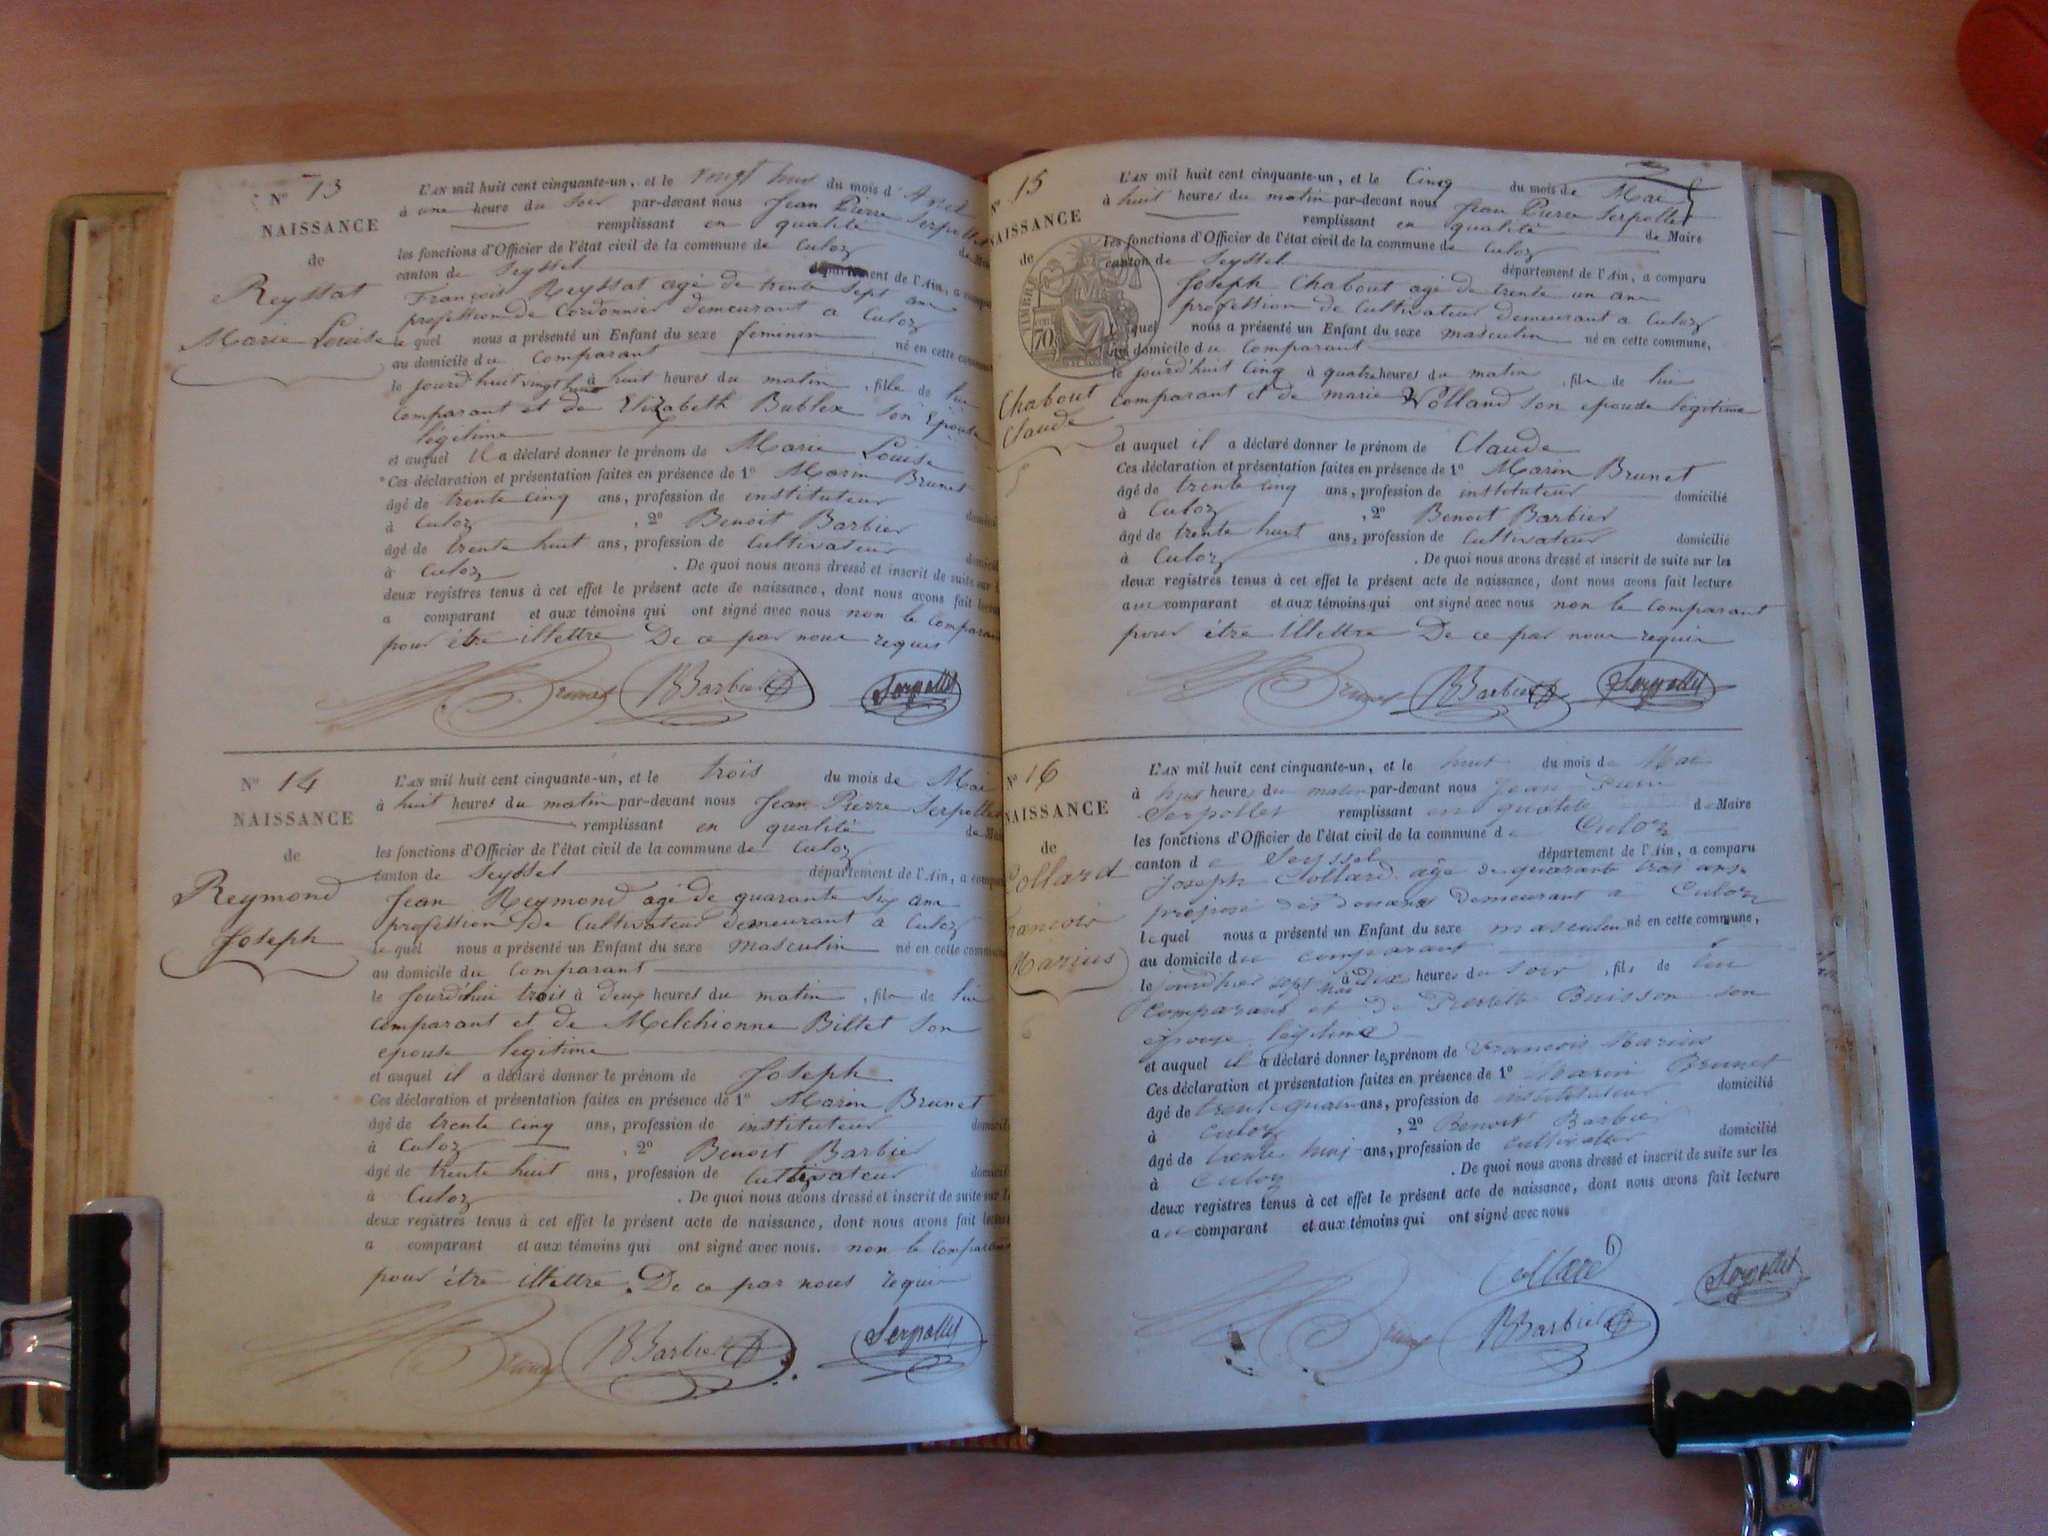 N° 13
NAISSANCE
de
Reyssat
Marie Louise
L'AN mil huit cent cinquante-un, et le vingt huit du mois d'Avril
à une heure du soir par-devant nous Jean Pierre Serpollet
remplissant en qualité de Maire
les fonctions d'Officier de l'état civil de la commune de Culoz
canton de Seyssel département de l'Ain, a comparu
François Reyssat agé de trente sept ans
profession de Cordonnier demeurant a Culoz
le quel nous a présenté un Enfant du sexe féminin né en cette commune
au domicile du comparant
le jourd'huit vingt huit à huit heures du matin, fille de lui
comparant et de Elizabeth Bublex son Epouse
légitime
et auquel il a déclaré donner le prénom de Marie Louise
Ces déclaration et présentation faites en présence de 1° Marin Brunet
âgé de trente cinq ans, profession de instituteur domicilié
à Culoz, 2° Benoit Barbier
âgé de trente huit ans, profession de Cultivateur domicilié
à Culoz. De quoi nous avons dressé et inscrit de suite sur les
deux registres tenus à cet effet le présent acte de naissance, dont nous avons fait lecture
a comparant et aux témoins qui ont signé avec nous non le comparant
pour être illettre De ce par nous requis
Brunet BBarbier Serpollet
N° 14
NAISSANCE
de
Reymond
Joseph
L'AN mil huit cent cinquante-un, et le trois du mois de Mai
à huit heures du matin par-devant nous Jean Pierre Serpollet
remplissant en qualité de Maire
les fonctions d'Officier de l'état civil de la commune de Culoz
canton de Seyssel département de l'Ain, a comparu
Jean Reymond agé de quarante six ans
profession de Cultivateur demeurant a Culoz
le quel nous a présenté un Enfant du sexe masculin né en cette commune
au domicile du comparant
le jourd'hui trois à deux heures du matin, fils de lui
comparant et de Melchionne Billet son
epouse legitime
et auquel il a déclaré donner le prénom de Joseph
Ces déclaration et présentation faites en présence de 1° Marin Brunet
âgé de trente cinq ans, profession de instituteur domicilié
à Culoz, 2° Benoit Barbier
âgé de trente huit ans, profession de Cultivateur domicilié
à Culoz. De quoi nous avons dressé et inscrit de suite sur les
deux registres tenus à cet effet le présent acte de naissance, dont nous avons fait lecture
a comparant et aux témoins qui ont signé avec nous. non le comparant
pour être illettre. De ce par nous requis
Brunet BBarbier Serpollet
N° 15
NAISSANCE
de
TIMBRE
70
Chabout
Claude
L'AN mil huit cent cinquante-un, et le Cinq du mois de Mai
à huit heures du matin par-devant nous Jean Pierre Serpollet
remplissant en qualité de Maire
les fonctions d'Officier de l'état civil de la commune de Culoz
canton de Seyssel département de l'Ain, a comparu
Joseph Chabout agé de trente un ans
profession de Cultivateur demeurant a Culoz
le quel nous a présenté un Enfant du sexe masculin né en cette commune,
au domicile du comparant
le jourd'huit cinq à quatre heures du matin, fils de lui
comparant et de marie Rolland son epouse légitime
et auquel il a déclaré donner le prénom de Claude
Ces déclaration et présentation faites en présence de 1° Marin Brunet
âgé de trente cinq ans, profession de instituteur domicilié
à Culoz, 2° Benoit Barbier
âgé de trente huit ans, profession de Cultivateur domicilié
à Culoz. De quoi nous avons dressé et inscrit de suite sur les
deux registres tenus à cet effet le présent acte de naissance, dont nous avons fait lecture
au comparant et aux témoins qui ont signé avec nous non le comparant
pour être illettre De ce par nous requis
Brunet BBarbier Serpollet
N° 16
NAISSANCE
de
Collard
François
Marius
L'AN mil huit cent cinquante-un, et le huit du mois de Mai
à huit heures du matin par-devant nous Jean Pierre
Serpollet remplissant en qualité de Maire
les fonctions d'Officier de l'état civil de la commune de Culoz
canton de Seyssel département de l'Ain, a comparu
Joseph Collard âgé de quarante trois ans
préposé des douanes demeurant à Culoz
lequel nous a présenté un Enfant du sexe masculin né en cette commune,
au domicile du comparant
le jourd'hier sept mai à dix heures du soir, fils de lui
comparant et de Pierrette Buisson son
épouse légitime
et auquel il a déclaré donner le prénom de François Marius
Ces déclaration et présentation faites en présence de 1° Marin Brunet
âgé de trente quatre ans, profession de instituteur domicilié
à Culoz, 2° Benoit Barbier
âgé de trente huit ans, profession de cultivateur domicilié
à Culoz. De quoi nous avons dressé et inscrit de suite sur les
deux registres tenus à cet effet le présent acte de naissance, dont nous avons fait lecture
au comparant et aux témoins qui ont signé avec nous
Collard Serpollet
Brunet BBarbier